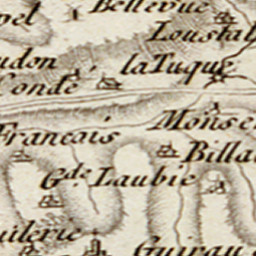 Bellevue
pel
Loustal
udon
la Tuque
Condé
Francais
Monse
Billa
Gde. Laubie
uilerie
Guirau